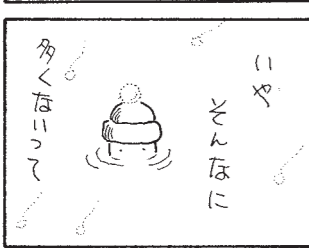 いや
そんなに
多くないって